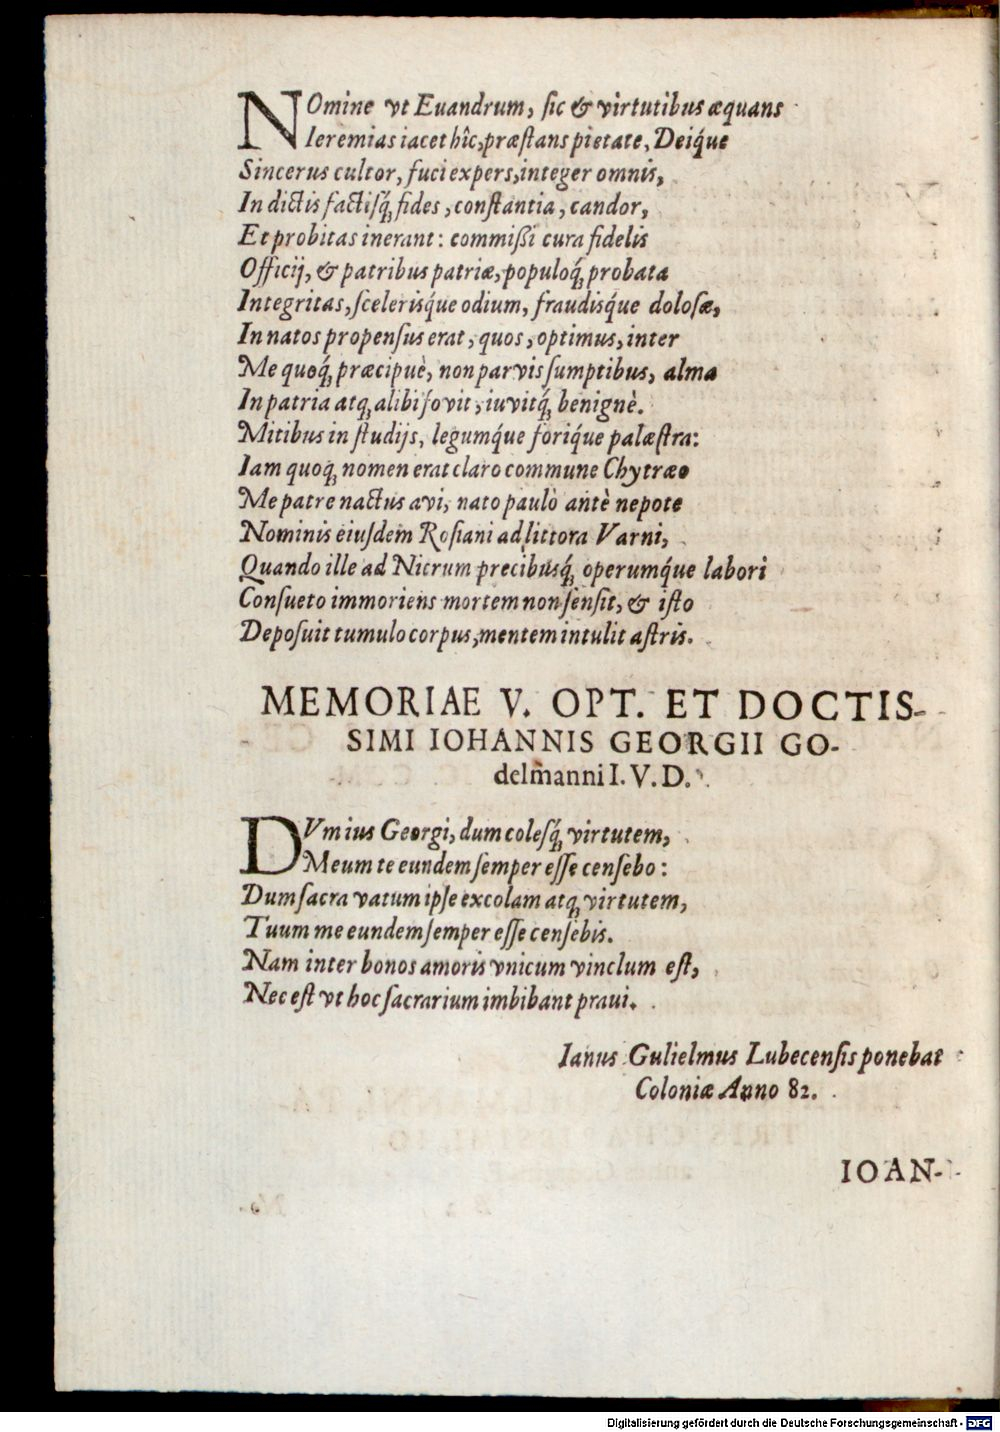 NOmine vt Euandrum, sic & virtutibus æquans
Ieremias iacet hîc, præstans pietate, Deiq́ue
Sincerus cultor, fuci expers, integer omnis,
In dictis factisq́; fides, constantia, candor,
Et probitas inerant: commißi cura fidelis
Officij, & patribus patriæ, populoq́; probata
Integritas, scelerisq́ue odium, fraudisq́ue dolosæ,
In natos propensus erat, quos, optimus, inter
Me quoq́; præcipuè, non parvis sumptibus, alma
In patria atq; alibi fovit, iuvitq́; benignè.
Mitibus in studijs, legumq́ue foriq́ue palæstra:
Iam quoq; nomen erat claro commune Chytræo
Me patre nactus avi, nato paulò antè nepote
Nominis eiusdem Rosiani ad littora Varni,
Quando ille ad Nicrum precibusq́; operumq́ue labori
Consueto immoriens mortem non sensit, & isto
Deposuit tumulo corpus, mentem intulit astris.
MEMORIAE V. OPT. ET DOCTIS-
SIMI IOHANNIS GEORGII GO-
delmanni I. V. D.
DVm ius Georgi, dum colesq́; virtutem,
Meum te eundem semper esse censebo:
Dum sacra vatum ipse excolam atq; virtutem,
Tuum me eundem semper esse censebis.
Nam inter bonos amoris vnicum vinclum est,
Nec est vt hoc sacrarium imbibant praui.
Ianus Gulielmus Lubecensis ponebat
Coloniæ Anno 82.
IOAN-
Digitalisierung gefördert durch die Deutsche Forschungsgemeinschaft - DFG